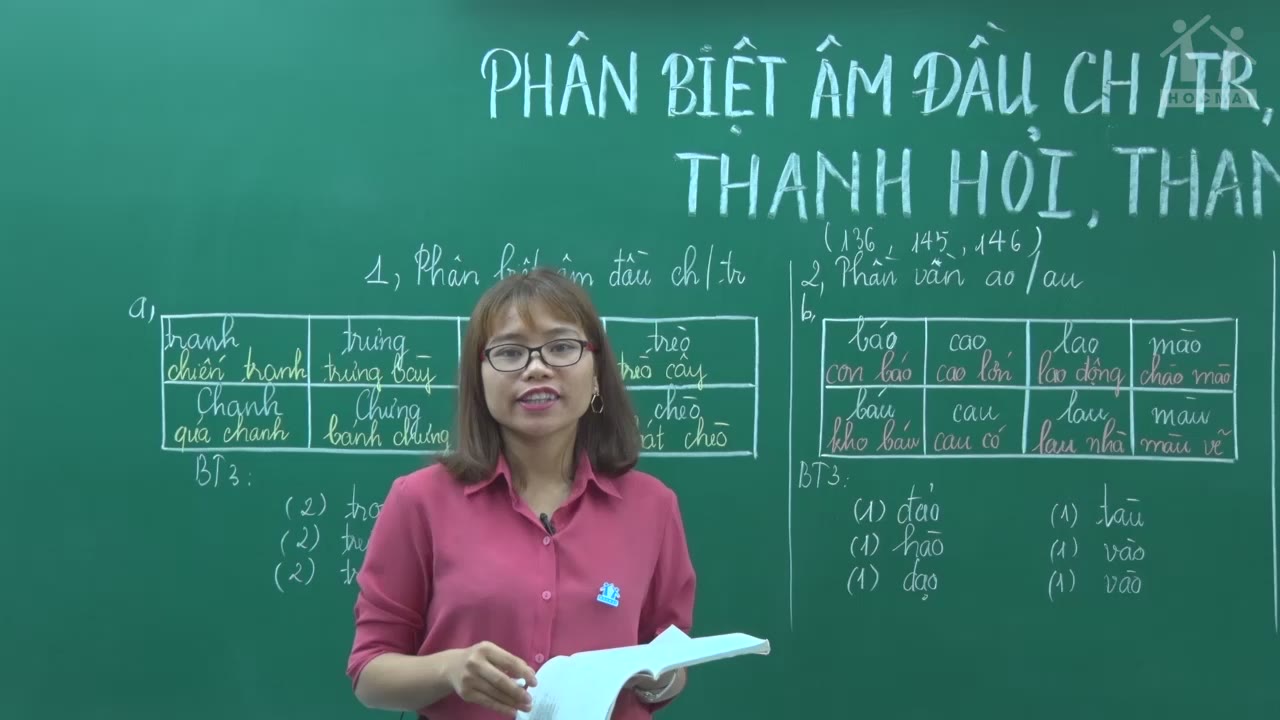 PHÂN BIỆT ÂM ĐẦU CH / TR,
HOCMAI
THANH HỎI, THAN
(136, 145, 146)
1, Phân biệt âm đầu ch/tr
a,
tranh trưng trèo
chiến tranh trưng bày trèo cây
Chanh Chưng chèo
quả chanh bánh chưng hát chèo
BT3:
(2)
(2)
(2)
2, Phần vần ao/au
b,
báo cao lao mào
con báo cao lớn lao động chào mào
báu cau lau màu
kho báu cau có lau nhà màu vẽ
BT3:
(1) đảo (1) tàu
(1) hào (1) vào
(1) dạo (1) vào